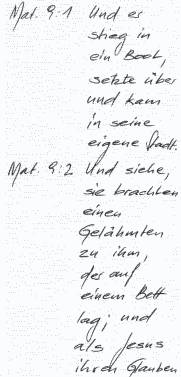 Mat. 9:1 Und er
stieg in
ein Boot,
setzte über
und kam
in seine
eigene Stadt.
Mat. 9:2 Und siehe,
sie brachten
einen
Gelähmten
zu ihm,
der auf
einem Bett
lag; und
als Jesus
ihren Glauben